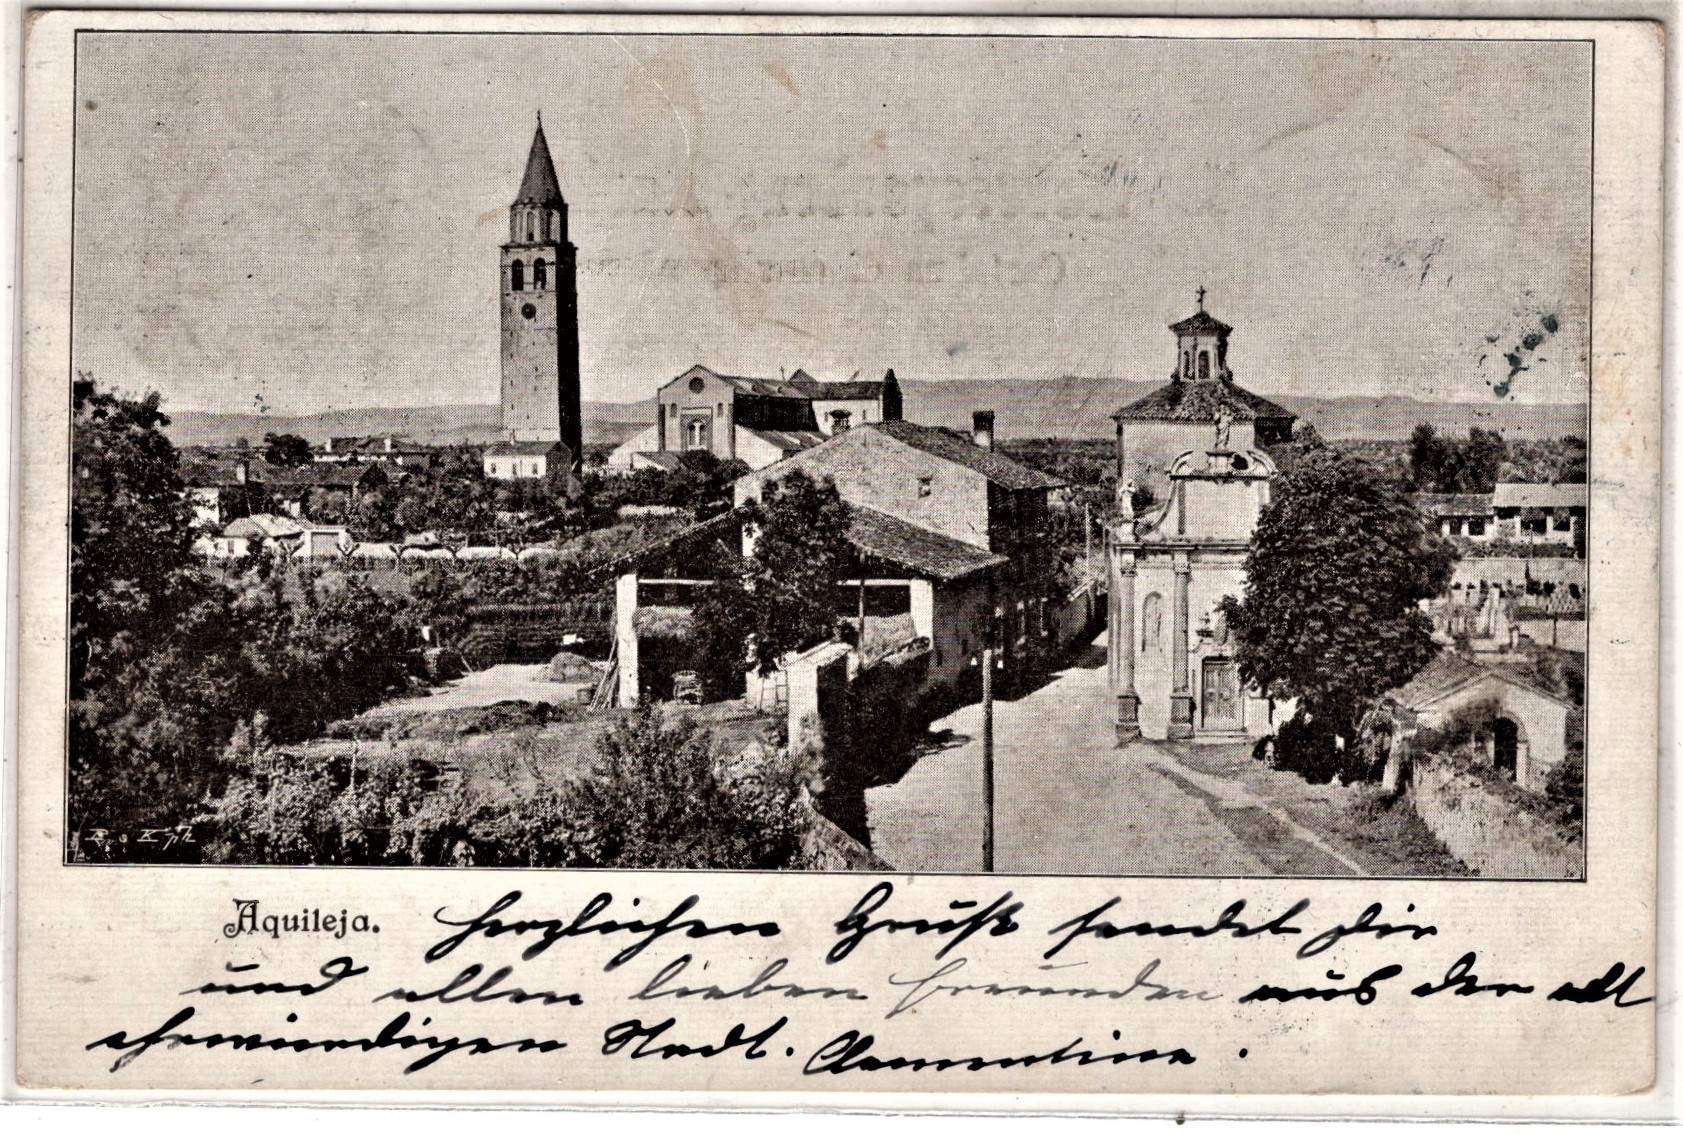 Aquileja.
Herzlichen Gruß sendet Dir
und allen lieben Freunden aus der alt
ehrwürdigen Stadt. Clementine.